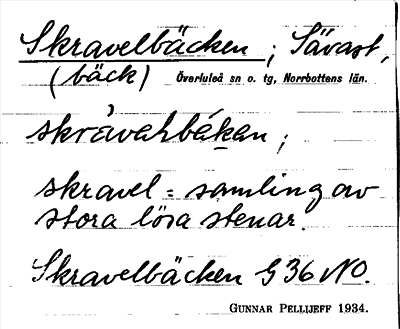 Skravelbäcken ; Sävast,
(bäck) Överluleå sn o. tg, Norrbottens län.
skràvahbékan ;
skravel = samling av
stora lösa stenar.
Skravelbäcken G 36 NO.
GUNNAR PELLIJEFF 1934.